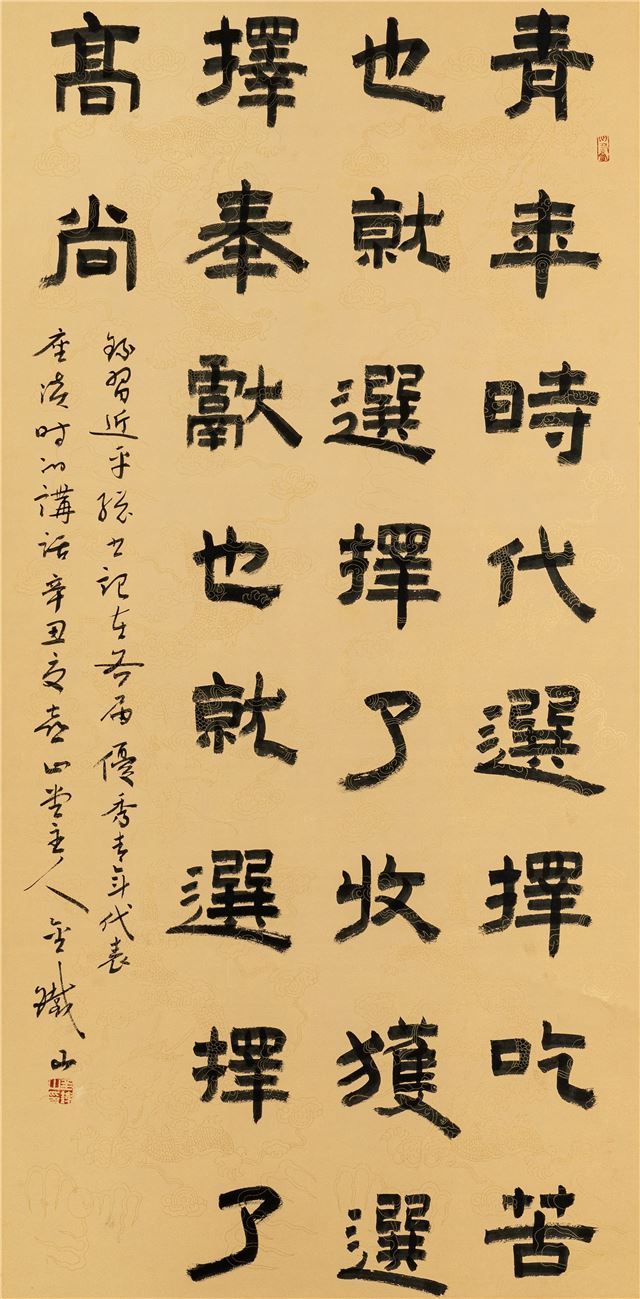 青年時代選擇吃苦
也就選擇了收獲選
擇奉獻也就選擇了
高尚
錄習近平總書記在各届優秀青年代表
座談時的講話辛丑夏喜山堂主人金鐵山